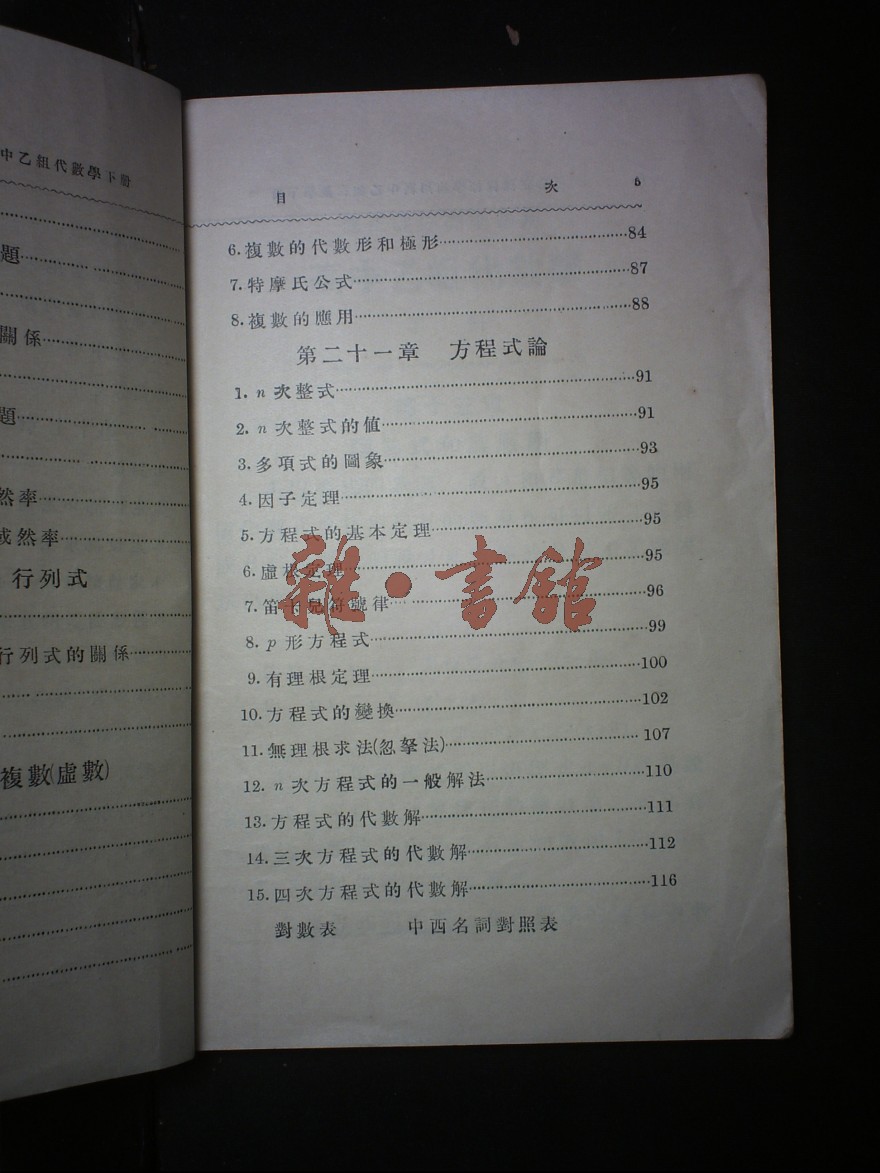 中乙組代數學下册
題
關係
題
然率
或然率
行列式
行列式的關係
複數(虛數)
目 次 5
6. 複數的代數形和極形 84
7. 特摩氏公式 87
8. 複數的應用 88
第二十一章 方程式論
1. n 次整式 91
2. n 次整式的値 91
3. 多項式的圖象 93
4. 因子定理 95
5. 方程式的基本定理 95
6. 虛根定理 95
7. 笛卡兒符號律 96
8. p 形方程式 99
9. 有理根定理 100
10. 方程式的變換 102
11. 無理根求法(忽拏法) 107
12. n 次方程式的一般解法 110
13. 方程式的代數解 111
14. 三次方程式的代數解 112
15. 四次方程式的代數解 116
對數表 中西名詞對照表
雜·書館